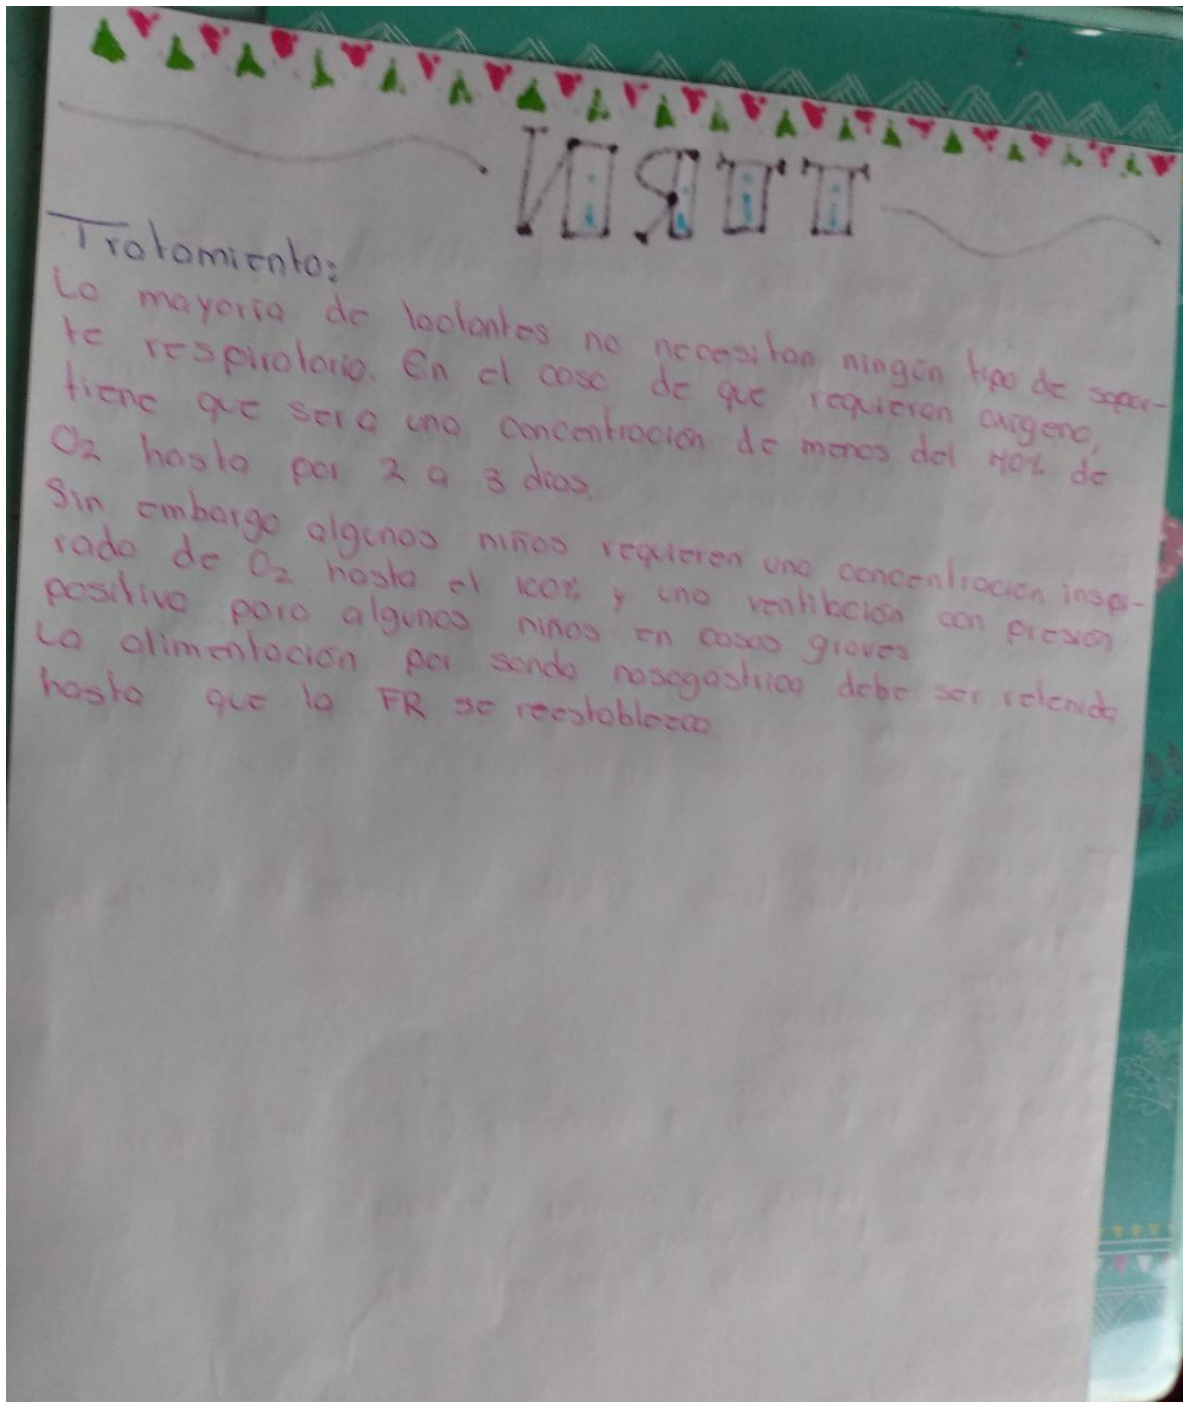 TTRN
Tratamiento:
La mayoría de lactantes no necesitan ningún tipo de sopor-
te respiratorio. En el caso de que requieran oxigeno,
tiene que ser a una concentración de menos del 40% de
O2 hasta por 2 a 3 días.
Sin embargo algunos niños requieren una concentración inspi-
rada de O2 hasta el 100% y una ventilación con presión
positiva para algunos niños en casos graves.
La alimentación por sonda nasogastrica debe ser retenida
hasta que la FR se reestablezca.